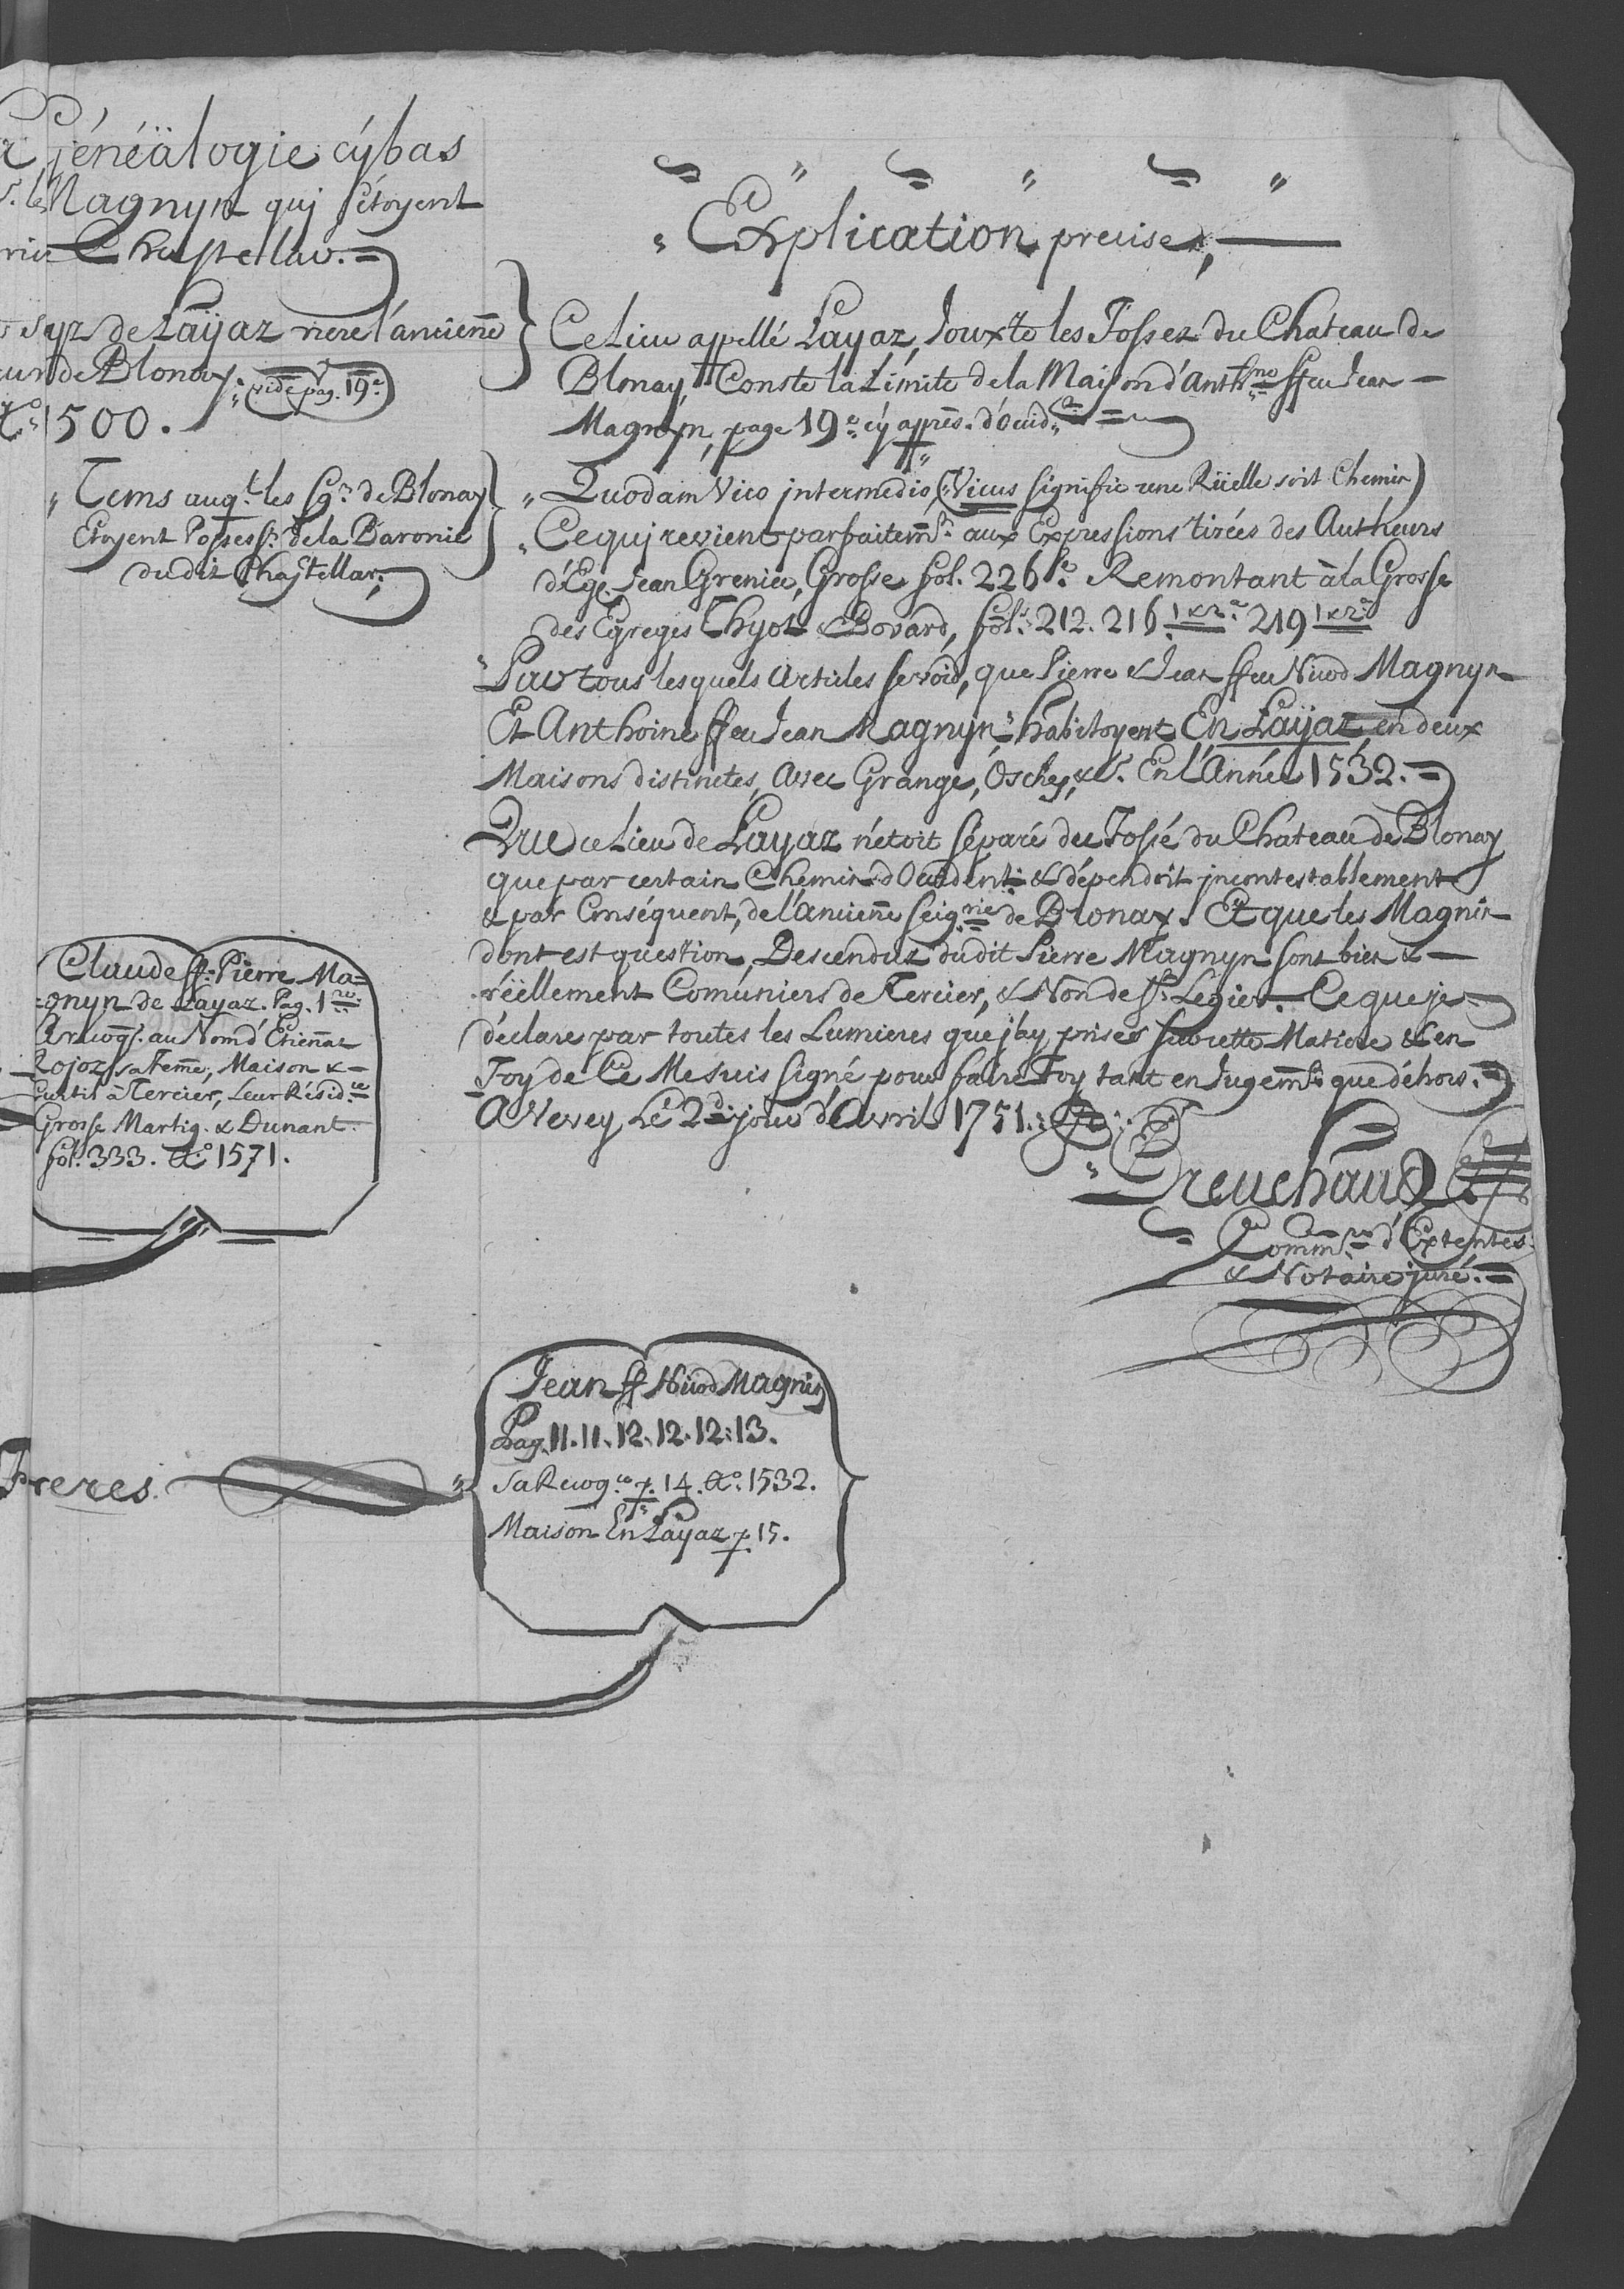 Généälogie cÿbas
Magnyn quj s'étoyent
Chastellar.
Syz de Laÿaz riere l'ancieñe
de Blonay. vide pag. 19.e
1500.
Tems aug.t les Sg.rs de Blonay
Etoyent Possess.rs de la Baronie
dudit Chastellar;
Explication precise;
Ce Lieu appellé Layaz, Jouxte les Fossez du Chateau de
Blonay, Conste la Limite de la Maison d'Anth.no ffeu Jean
Magnyn, page 19.e cÿ apprès. d'Occid.
Quodam Vico jntermedio (Vicus signifie une Rüelle soit Chemin)
Cequj revient parfaitem.t aux Expressions tirées des Autheurs
d'Ege. Jean Grenier, Grosse fol. 226 Remontant à la Grosse
des Egreges Thyot & Bovard, fol.s 212. 216 1 & 2.o 219 1 & 2.o
Par tous lesquels Articles se void, que Pierre & Jean ffeu Nicod Magnyn
Et Anthoine ffeu Jean Magnyn, habitoyent En Laÿaz en deux
Maisons distinctes, Avec Grange, Oschey, &c. En l'Année 1532.
Que ce Lieu de Layaz n'étoit séparé du Fossé du Chateau de Blonay
que par certain Chemin d'Occident & dépendoit jncontestablement
& par Conséquent, de l'Ancieñe Seig.rie de Blonay. Et que les Magnin
dont est question, Descendus dudit Pierre Magnyn sont bien &
réëllement Comuniers de Tercier, & Non de S.t Legier. Ce que je
déclare par toutes les Lumieres que j'ay prises sur cette Matiere & en
Foy de Ce Me suis signé pour faire Foy tant en Jugem.t que déhors.
A Vevey Le 2.d jour d'Avril 1751.
Dreuchaud
Comm.re d'Extentes
& Notaire juré.
Claude ff. Pierre Ma=
=gnyn de Layaz. Pag. 1.re
Arecog.t au Nom d'Etieñaz
Rojoz sa Feme, Maison &
Curtil à Tercier, Leur Résid.ce
Grosse Martig. & Dunant.
fol. 333. A.o 1571.
Freres.
Jean ff Nicod Magnin
Pag. 11. 11. 12. 12. 12. 13.
Sa Recog.ce p. 14. A.o 1532.
Maison En Layaz p. 15.